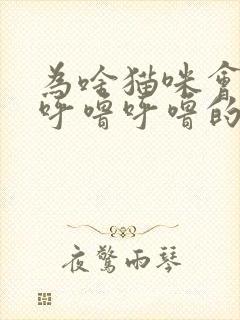 為啥猫咪會
呼嚕呼嚕的
夜驚雨琴